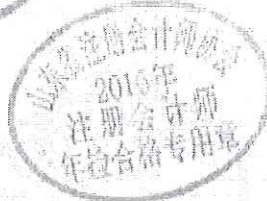 山东省注册会计师协会
2010年
注册会计师
年检合格专用章